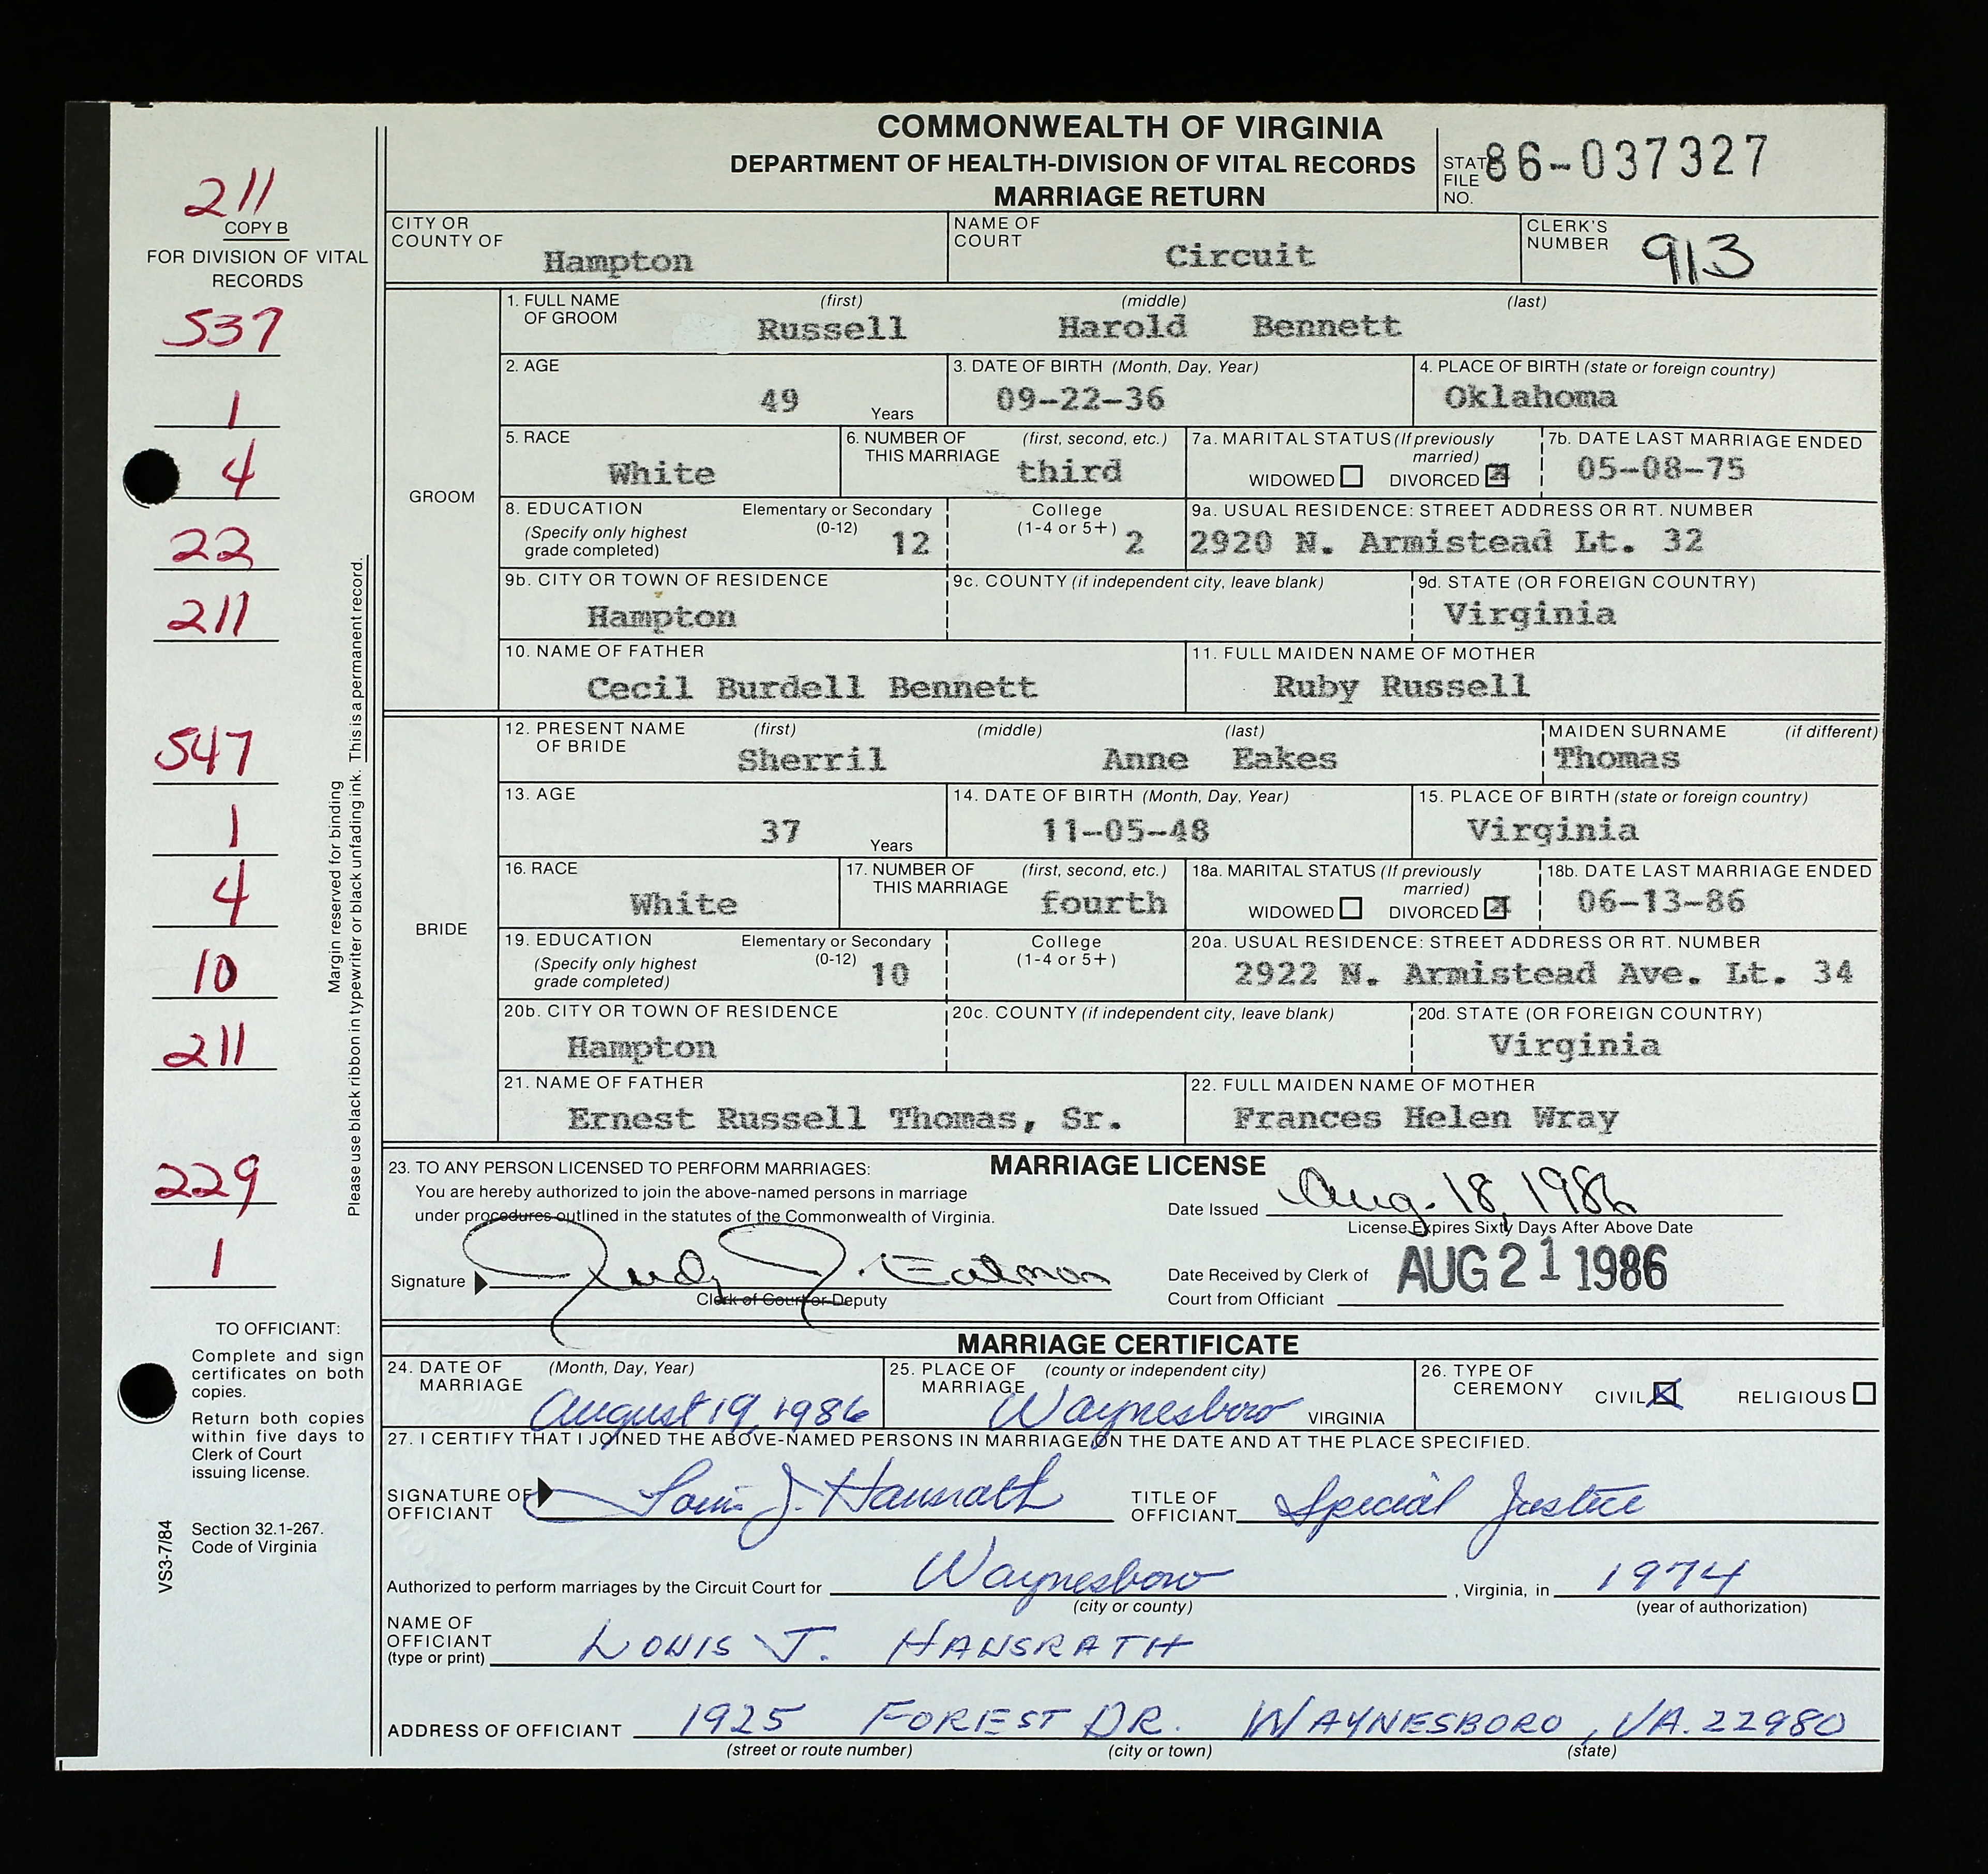 COMMONWEALTH OF VIRGINIA
DEPARTMENT OF HEALTH-DIVISION OF VITAL RECORDS
MARRIAGE RETURN
STATE FILE NO. 86-037327
211
COPY B
FOR DIVISION OF VITAL RECORDS
537
1
4
22
211
547
1
4
10
211
229
1
Margin reserved for binding
Please use black ribbon in typewriter or black unfading ink. This is a permanent record.
TO OFFICIANT:
Complete and sign
certificates on both
copies.
Return both copies
within five days to
Clerk of Court
issuing license.
Section 32.1-267.
Code of Virginia
VS3-7/84
CITY OR COUNTY OF Hampton
NAME OF COURT Circuit
CLERK'S NUMBER 913
GROOM
1. FULL NAME OF GROOM (first) (middle) (last)
Russell Harold Bennett
2. AGE 49 Years
3. DATE OF BIRTH (Month, Day, Year) 09-22-36
4. PLACE OF BIRTH (state or foreign country) Oklahoma
5. RACE White
6. NUMBER OF THIS MARRIAGE (first, second, etc.) third
7a. MARITAL STATUS (If previously married) WIDOWED DIVORCED X
7b. DATE LAST MARRIAGE ENDED 05-08-75
8. EDUCATION (Specify only highest grade completed) Elementary or Secondary (0-12) 12
College (1-4 or 5+) 2
9a. USUAL RESIDENCE: STREET ADDRESS OR RT. NUMBER
2920 N. Armistead Lt. 32
9b. CITY OR TOWN OF RESIDENCE Hampton
9c. COUNTY (if independent city, leave blank)
9d. STATE (OR FOREIGN COUNTRY) Virginia
10. NAME OF FATHER Cecil Burdell Bennett
11. FULL MAIDEN NAME OF MOTHER Ruby Russell
BRIDE
12. PRESENT NAME OF BRIDE (first) (middle) (last)
Sherril Anne Eakes
MAIDEN SURNAME (if different) Thomas
13. AGE 37 Years
14. DATE OF BIRTH (Month, Day, Year) 11-05-48
15. PLACE OF BIRTH (state or foreign country) Virginia
16. RACE White
17. NUMBER OF THIS MARRIAGE (first, second, etc.) fourth
18a. MARITAL STATUS (If previously married) WIDOWED DIVORCED X
18b. DATE LAST MARRIAGE ENDED 06-13-86
19. EDUCATION (Specify only highest grade completed) Elementary or Secondary (0-12) 10
College (1-4 or 5+)
20a. USUAL RESIDENCE: STREET ADDRESS OR RT. NUMBER
2922 N. Armistead Ave. Lt. 34
20b. CITY OR TOWN OF RESIDENCE Hampton
20c. COUNTY (if independent city, leave blank)
20d. STATE (OR FOREIGN COUNTRY) Virginia
21. NAME OF FATHER Ernest Russell Thomas, Sr.
22. FULL MAIDEN NAME OF MOTHER Frances Helen Wray
MARRIAGE LICENSE
23. TO ANY PERSON LICENSED TO PERFORM MARRIAGES:
You are hereby authorized to join the above-named persons in marriage
under procedures outlined in the statutes of the Commonwealth of Virginia.
Date Issued Aug. 18, 1986
License Expires Sixty Days After Above Date
Signature Judy J.
Clerk of Court or Deputy
Date Received by Clerk of Court from Officiant AUG 21 1986
MARRIAGE CERTIFICATE
24. DATE OF MARRIAGE (Month, Day, Year) August 19, 1986
25. PLACE OF MARRIAGE (county or independent city) Waynesboro VIRGINIA
26. TYPE OF CEREMONY CIVIL X RELIGIOUS
27. I CERTIFY THAT I JOINED THE ABOVE-NAMED PERSONS IN MARRIAGE ON THE DATE AND AT THE PLACE SPECIFIED.
SIGNATURE OF OFFICIANT Louis J. Hansrath
TITLE OF OFFICIANT Special Justice
Authorized to perform marriages by the Circuit Court for Waynesboro, Virginia, in 1974
(city or county) (year of authorization)
NAME OF OFFICIANT (type or print) LOUIS J. HANSRATH
ADDRESS OF OFFICIANT 1925 FOREST DR. WAYNESBORO, VA. 22980
(street or route number) (city or town) (state)